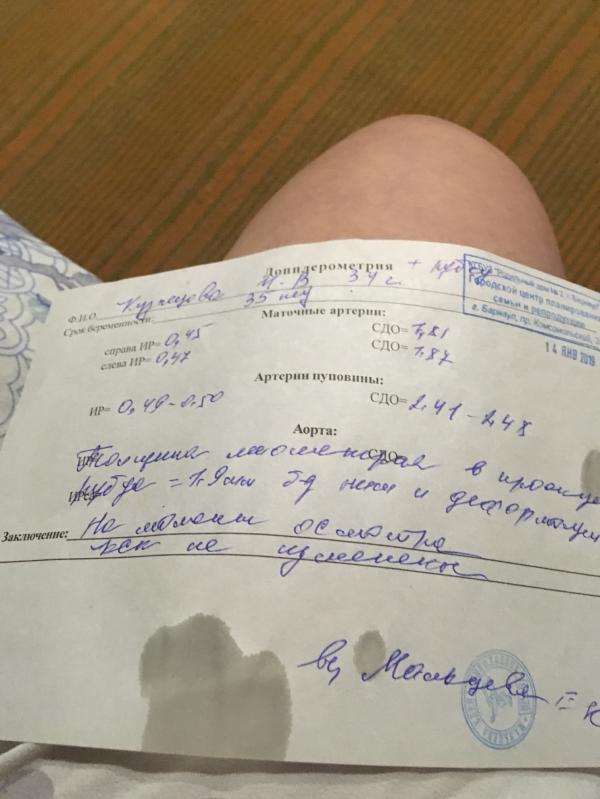 Допплерометрия + рубец
Ф.И.О. Кузнецова М.В 34 г.
Срок беременности: 35 нед
Маточные артерии:
справа ИР= 0,45 СДО= 1,81
слева ИР= 0,47 СДО= 1,87
Артерии пуповины:
ИР= 0,49-0.50 СДО= 2,41-2,48
Аорта:
СДО
Толщина миометрия в проекции
ИР=
рубца = 1.9мм б-н и деформации
Заключение: На момент осмотра
КСК не изменены
вр Мальцева Е
КГБУЗ "Родильный дом № 2, г. Барнаул"
Городской центр планирования
семьи и репродукции
г. Барнаул, пр. Комсомольский,
14 ЯНВ 2019